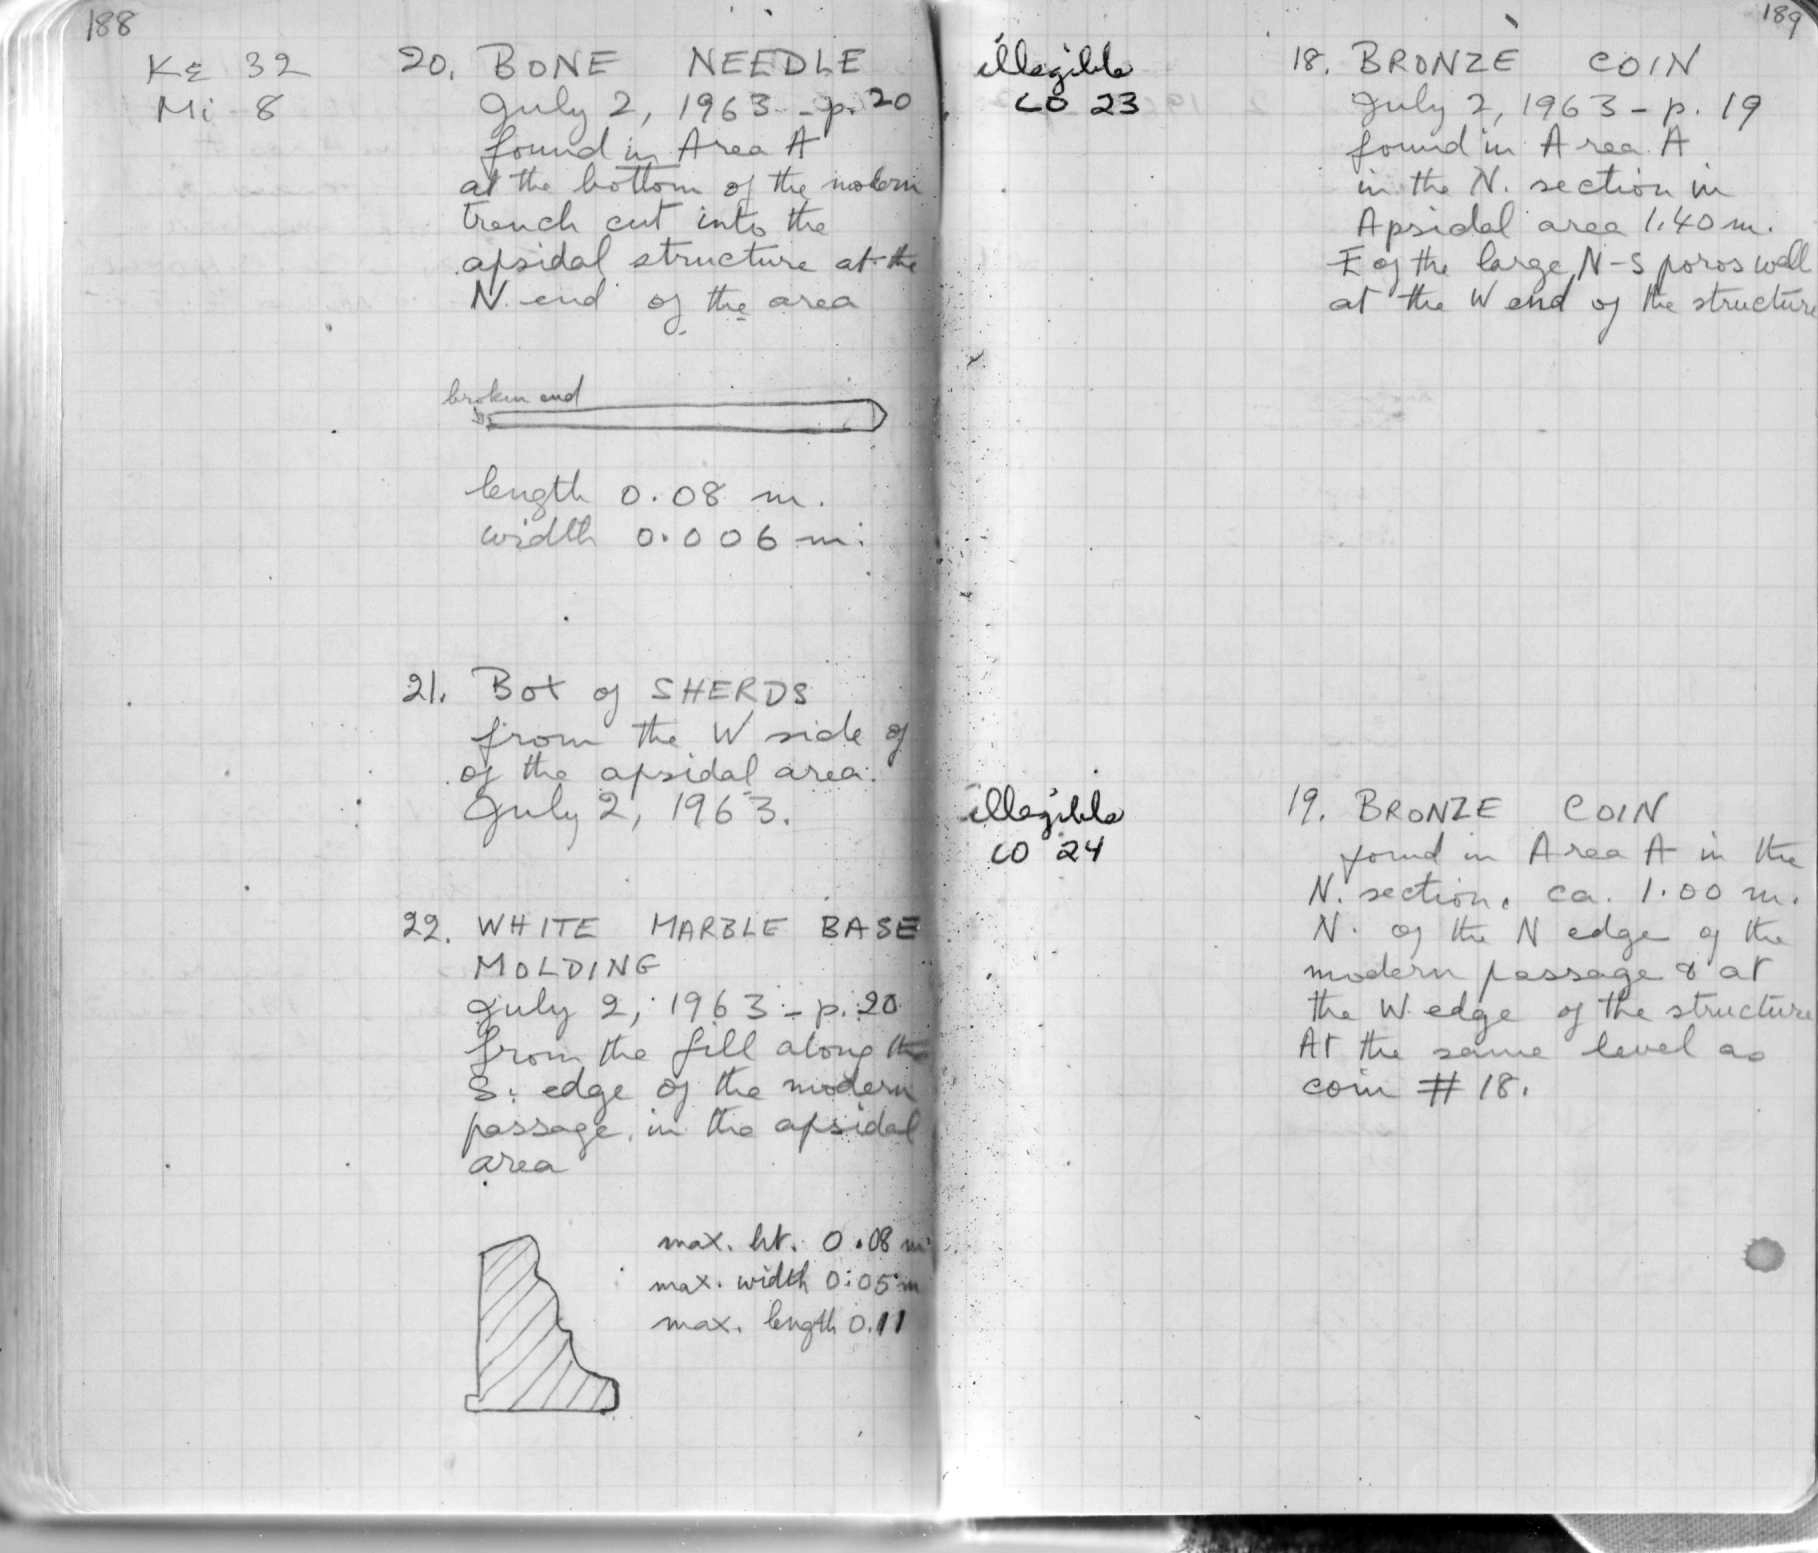 188
Kε 32
Mi 8
20. BONE NEEDLE
July 2, 1963 - p. 20
found in Area A
at the bottom of the modern
trench cut into the
apsidal structure at the
N. end of the area
broken end
length 0.08 m.
width 0.006 m.
21. Box of SHERDS
from the W side of
of the apsidal area.
July 2, 1963.
22. WHITE MARBLE BASE
MOLDING
July 2, 1963 - p. 20
from the fill along the
S. edge of the modern
passage in the apsidal
area
max. ht. 0.08 m
max. width 0.05 m
max. length 0.11
189
illegible
CO 23
18. BRONZE COIN
July 2, 1963 - p. 19
found in Area A
in the N. section in
Apsidal area 1.40 m.
E of the large N-S poros wall
at the W end of the structure
illegible
CO 24
19. BRONZE COIN
found in Area A in the
N. section. ca. 1.00 m.
N. of the N edge of the
modern passage & at
the W. edge of the structure
At the same level as
coin # 18.